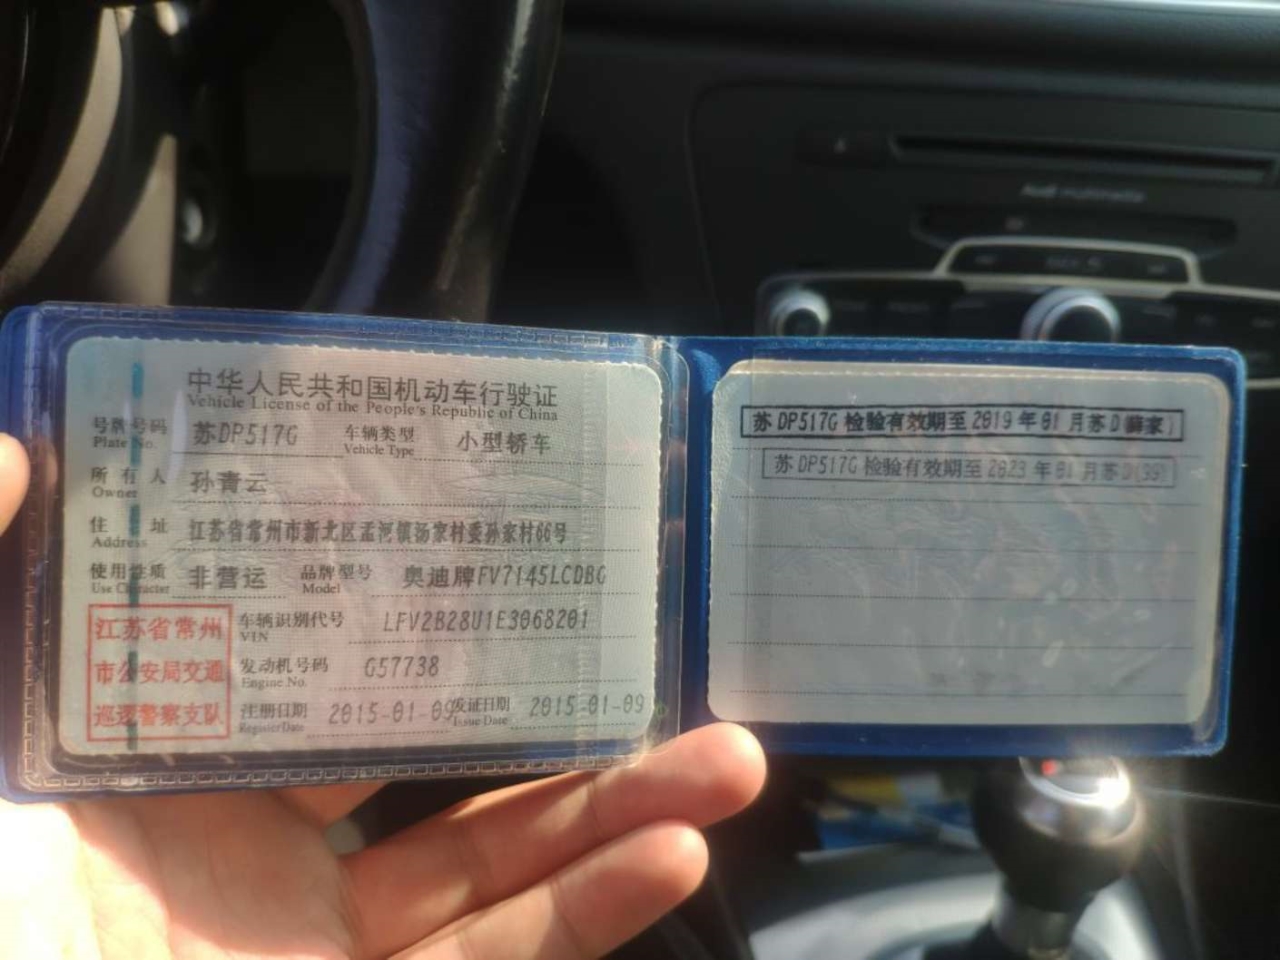 Audi multimedia
中华人民共和国机动车行驶证
Vehicle License of the People's Republic of China
号牌号码 苏DP517G 车辆类型 小型轿车
Plate No. Vehicle Type
所有人 孙青云
Owner
住址 江苏省常州市新北区孟河镇汤家村委孙家村66号
Address
使用性质 非营运 品牌型号 奥迪牌FV7145LCDBG
Use Character Model
江苏省常州 车辆识别代号 LFV2B28U1E3068201
VIN
市公安局交通 发动机号码 G57738
Engine No.
巡逻警察支队 注册日期 2015-01-09 发证日期 2015-01-09
Register Date Issue Date
苏DP517G 检验有效期至 2019 年 01 月苏D(薛家)
苏DP517G 检验有效期至 2023 年 01 月苏D(99)